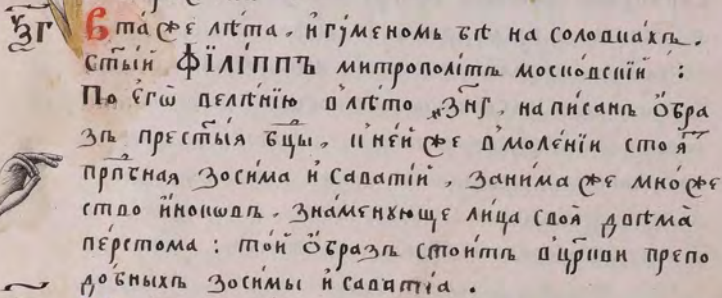 зг҃ В та́ же лѣта, и҆гꙋ́меномъ бѣ на соловка́хъ,
ст҃ы́й Філі́ппъ митрополі́тъ моско́вскїй :
По є҆гѡ̀ велѣ́нїю в̾лѣ́то ҂ зн҃г, написанъ ѻ҆́бра
зъ прест҃ы́ѧ бц҃ы, к̾не́й же в̾моле́нїи стоѧ́тъ
прп҇бнаѧ зоси́ма и҆ сава́тїй, за ни́ма же мно́же
ство и҆́ноковъ, зна́менꙋюще ли́ца своѧ̀ двѣма̀
пе́рстома : то́й ѻ҆́бразъ стои́тъ в̾цр҃кви препо
до́бныхъ зоси́мы и҆ сава́тїа .